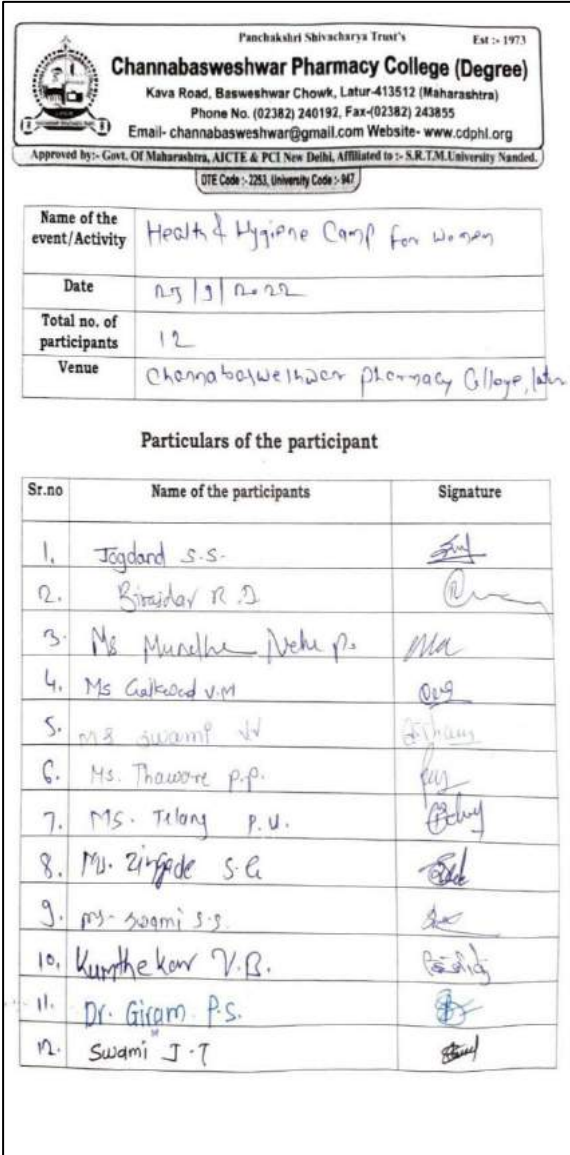 Panchakshri Shivacharya Trust's Est :- 1973
Channabasweshwar Pharmacy College (Degree)
Kava Road, Basweshwar Chowk, Latur-413512 (Maharashtra)
Phone No. (02382) 240192, Fax-(02382) 243855
Email- channabasweshwar@gmail.com Website- www.cdphl.org
Approved by:- Govt. Of Maharashtra, AICTE & PCI New Delhi, Affiliated to :- S.R.T.M.University Nanded.
DTE Code :- 2253, University Code :- 947
Name of the event/Activity Health & Hygiene Camp for women
Date /9/2022
Total no. of participants 12
Venue Channabasweshwar pharmacy College, latur
Particulars of the participant
Sr.no Name of the participants Signature
1. Jogdand S.S.
2. Birajdar R.D
3. Ms Mundhe Neha P.
4. Ms Gaikwad V.M
5. MS swami VV
6. Ms. Thaware P.P.
7. MS. Telang P.U.
8. Ms. Zingade S.G
9. Ms- swami S.S.
10. Kumthekar V.B.
11. Dr. Giram P.S.
12. Swami J.T